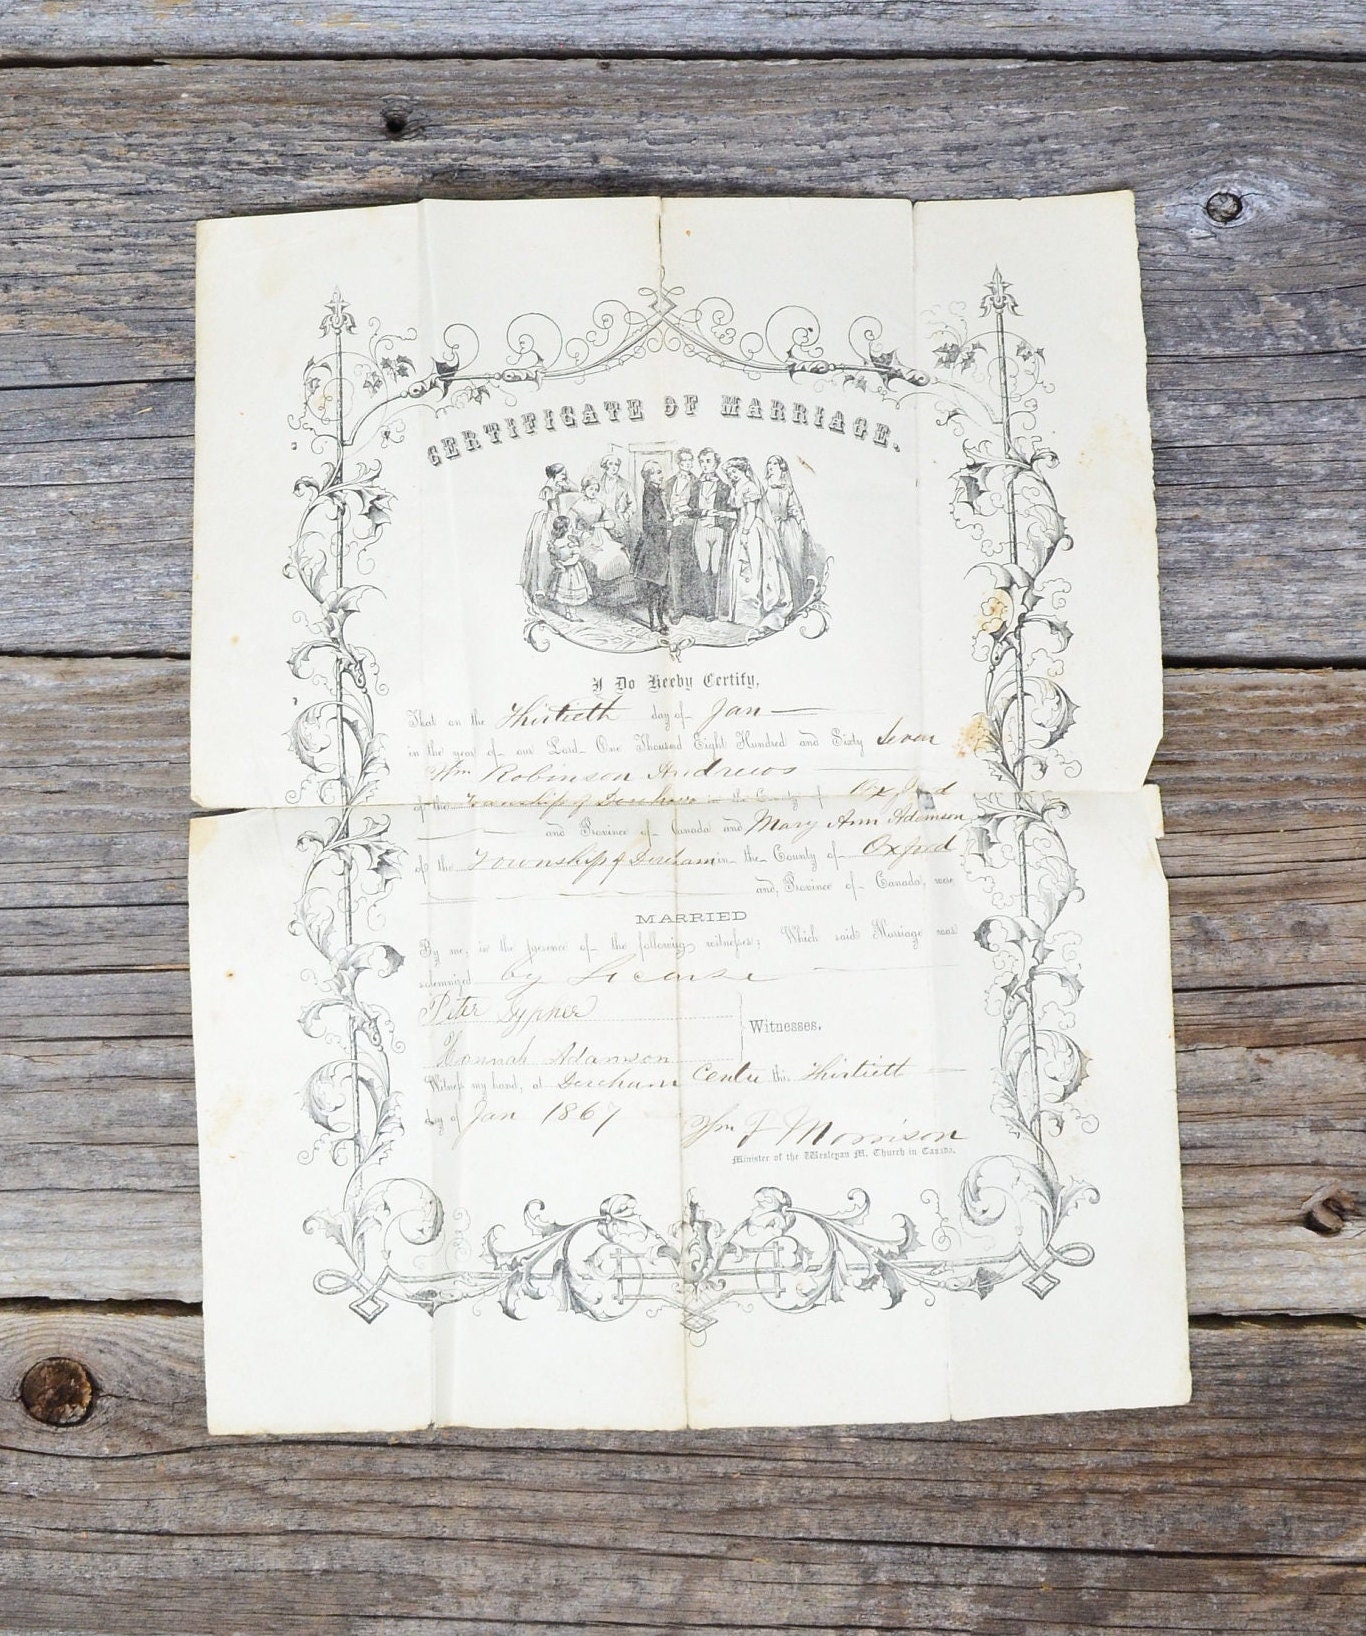 CERTIFICATE OF MARRIAGE.
I Do Hereby Certify,
That on the Thirtieth day of Jan
in the year of our Lord One Thousand Eight Hundred and Sixty Seven
Wm Robinson Andrews
of the Township of Dereham in the County of Oxford
and Province of Canada and Mary Ann Adamson
of the Township of Dereham in the County of Oxford
and Province of Canada, were
MARRIED
By me, in the presence of the following witnesses; Which said Marriage was
solemnized by License
Peter
Witnesses.
Hannah Adamson
Witness my hand, at Dereham Centre this Thirtieth
day of Jan 1867 Wm F Morrison
Minister of the Wesleyan M. Church in Canada.